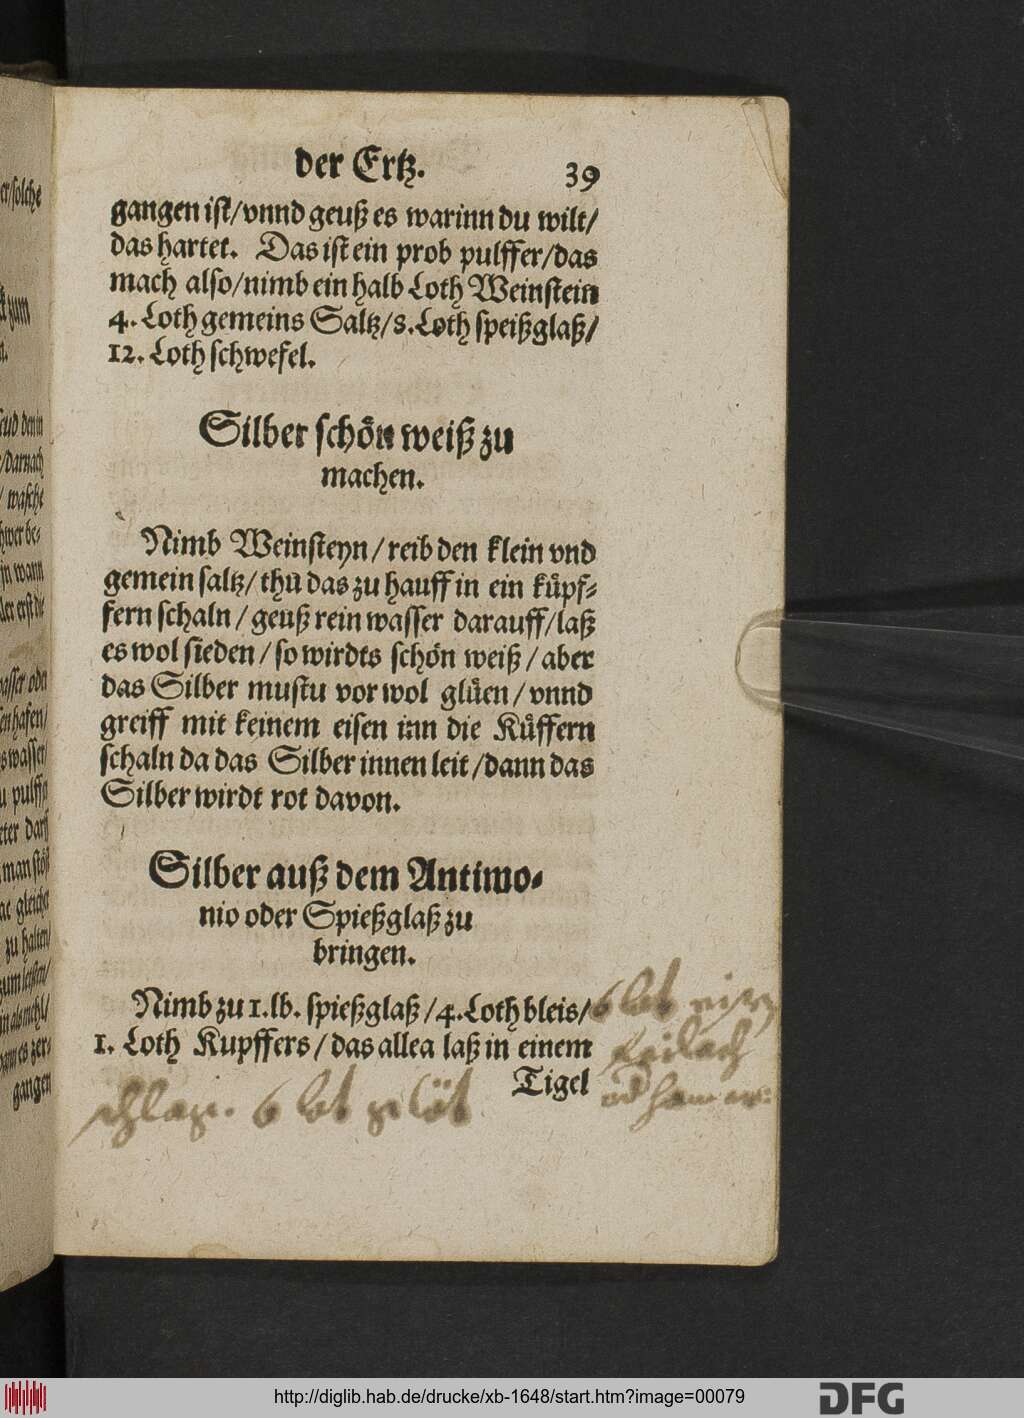 der Ertz. 39
gangen ist/vnnd geuß es warinn du wilt/
das hartet. Das ist ein prob pulffer/das
mach also/nimb ein halb Loth Weinstein
4. Loth gemeins Saltz/8. Loth speißglaß/
12. Loth schwefel.
Silber schön weiß zu
machen.
Nimb Weinsteyn/reib den klein vnd
gemein saltz/thu das zu hauff in ein küpf-
fern schaln/geuß rein wasser darauff/laß
es wol sieden/so wirdts schön weiß/aber
das Silber mustu vor wol glüen/vnnd
greiff mit keinem eisen inn die Küffern
schaln da das Silber innen leit/dann das
Silber wirdt rot davon.
Silber auß dem Antimo-
nio oder Spießglaß zu
bringen.
Nimb zu 1. lb. spießglaß/4. Loth bleis/
1. Loth Kupffers/das allea laß in einem
Tigel
6 lot
6 lot
http://diglib.hab.de/drucke/xb-1648/start.htm?image=00079
DFG